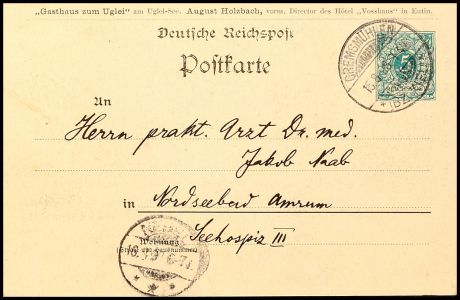 „Gasthaus zum Uglei" am Uglei-See. August Holzbach, vorm. Director des Hôtel „Vosshaus" in Eutin.
Deutsche Reichspost
Postkarte
GREMSMÜHLEN
An
Herrn prakt. Arzt Dr. med.
Jakob Naab
in Nordseebad Amrum
Seehospiz III
Wohnung